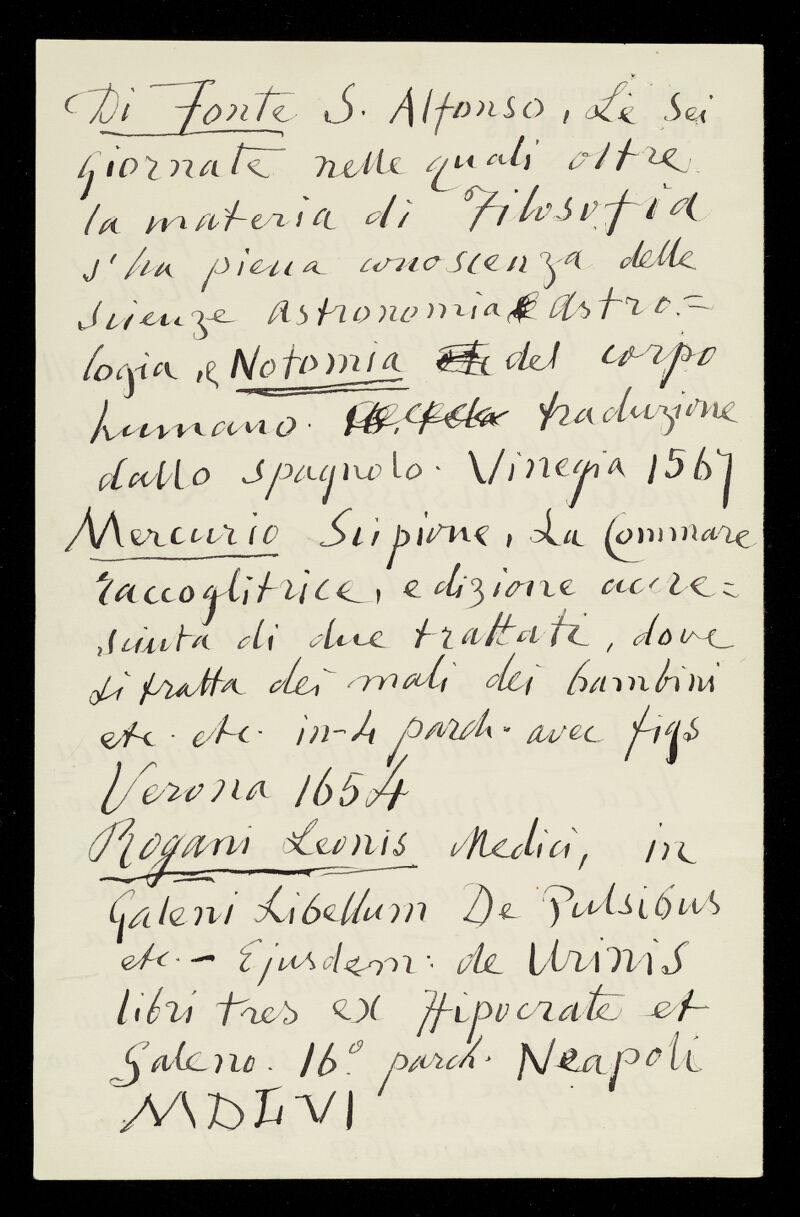 Di Fonte S. Alfonso, Le Sei
giornate nelle quali oltre
la materia di Filosofia
s'ha piena conoscenza delle
scienze Astronomia e Astro.=
logia, e Notomia etc del corpo
humano. traduzione
dallo spagnolo. Vinegia 1567
Mercurio Scipione, La Commare
raccoglitrice, edizione accre=
sciuta di due trattati, dove
si tratta dei mali dei bambini
etc. etc. in-4 parch. avec figs
Verona 1654
Rogani Leonis Medici, in
Galeni Libellum De Pulsibus
etc. - Ejusdem: de Urinis
libri tres ex Hipocrate et
Galeno. 16.° parch. Neapoli
MDLVI